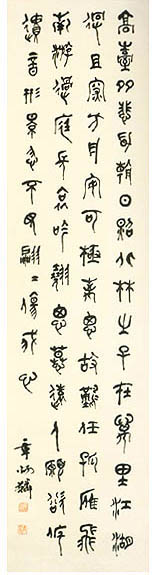 高臺多悲風朝日照北林之子在萬里江湖
迥且深方舟安可極離思故難任孤雁飛
南游過庭長哀吟翹思慕遠人願欲託
遺音形景忽不見翩〻傷我心
章炳麟